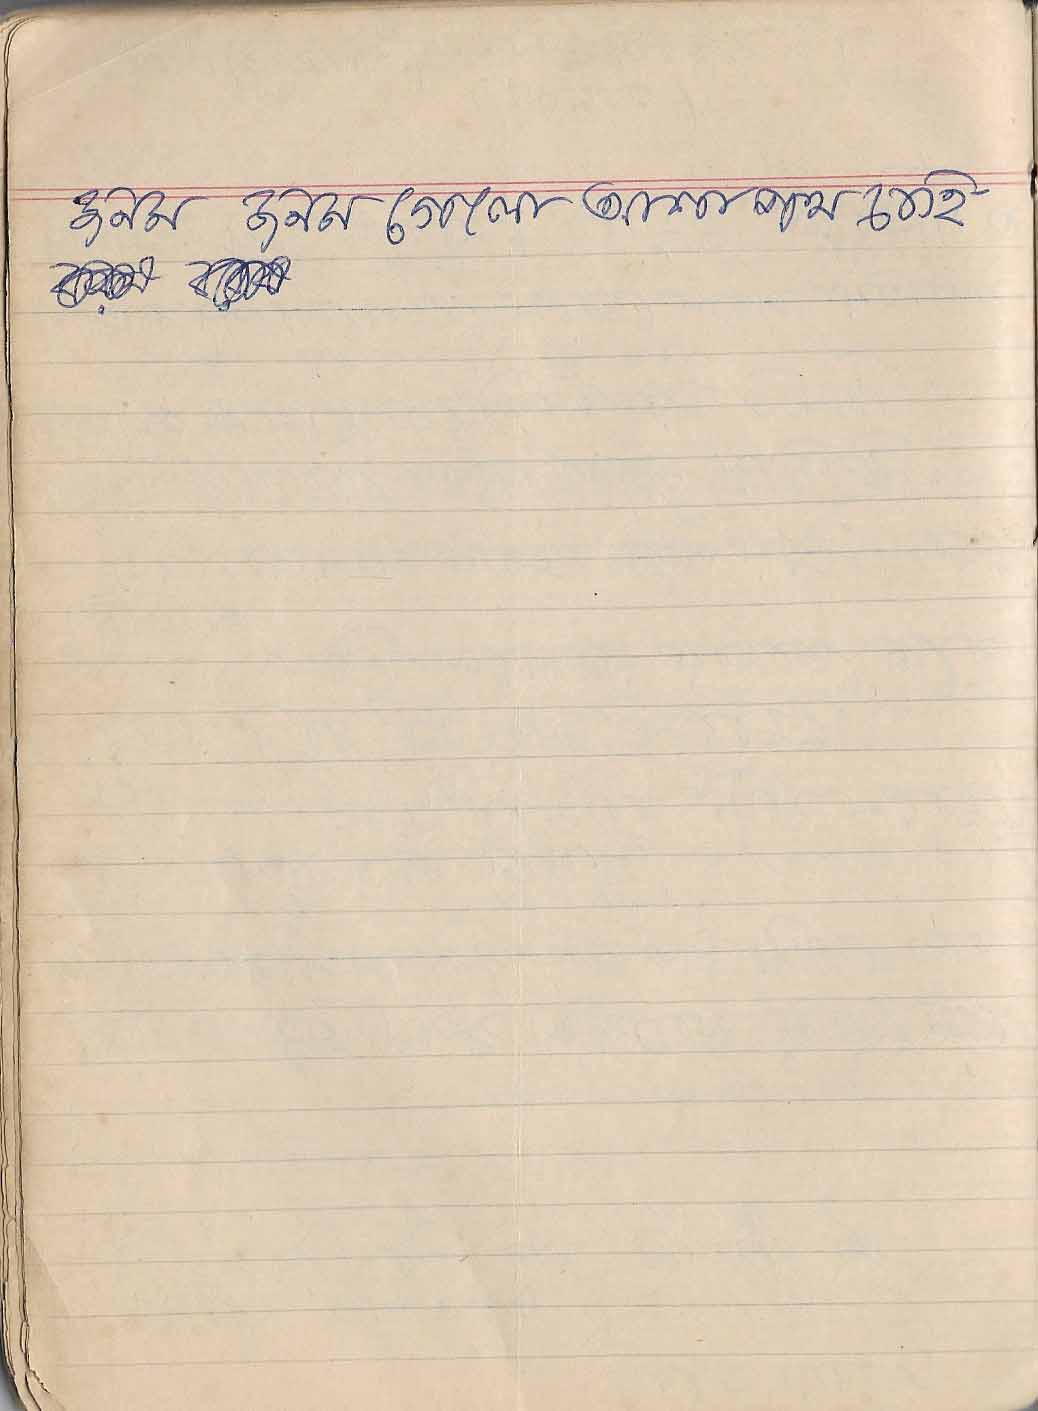 জনম জনম গেলো আশা পথ চাহি